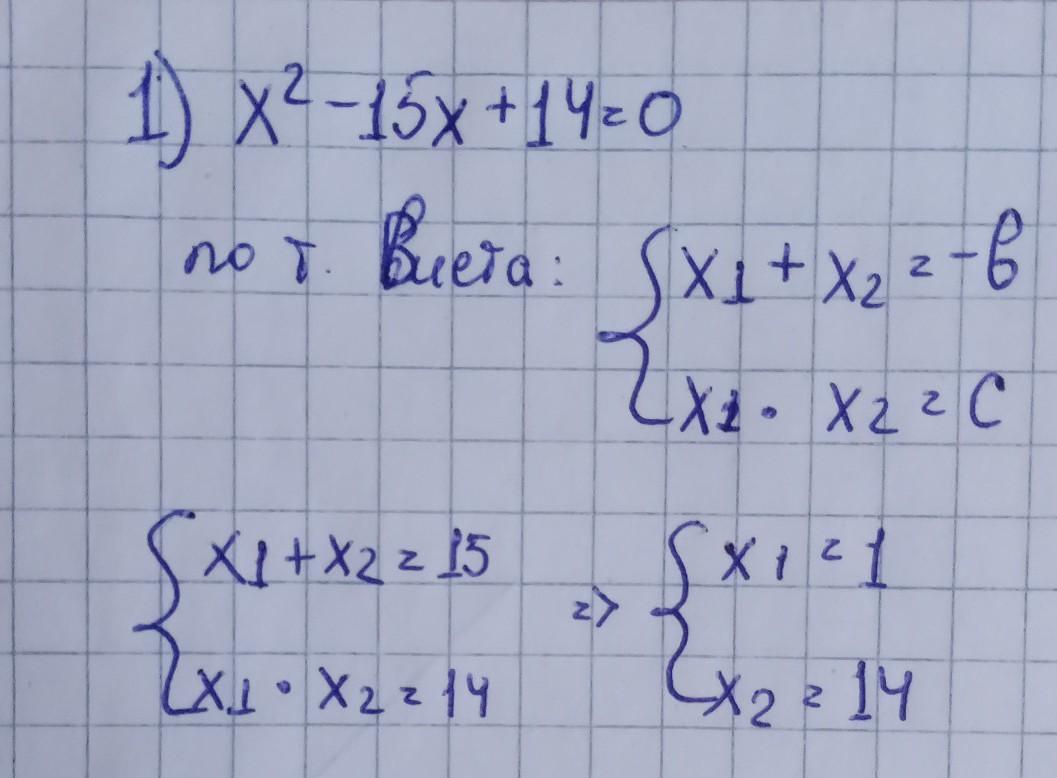 1) x² - 15x + 14 = 0
по т. Виета: { x1 + x2 = -b
x1 · x2 = c
{ x1 + x2 = 15 => { x1 = 1
x1 · x2 = 14 x2 = 14